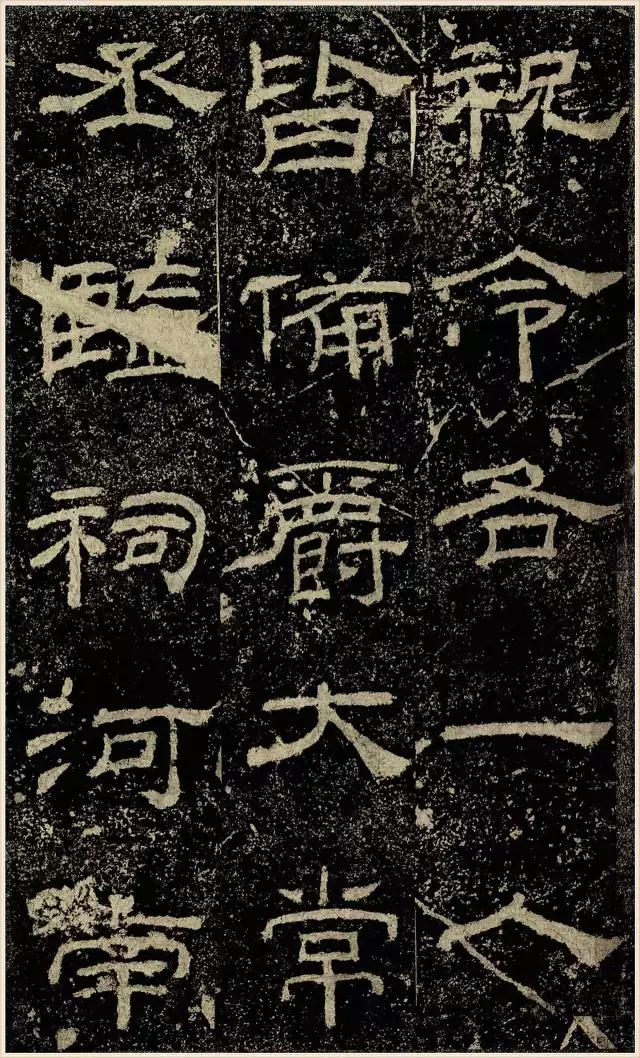 祝令各一人
皆備爵大常
丞監祠河南